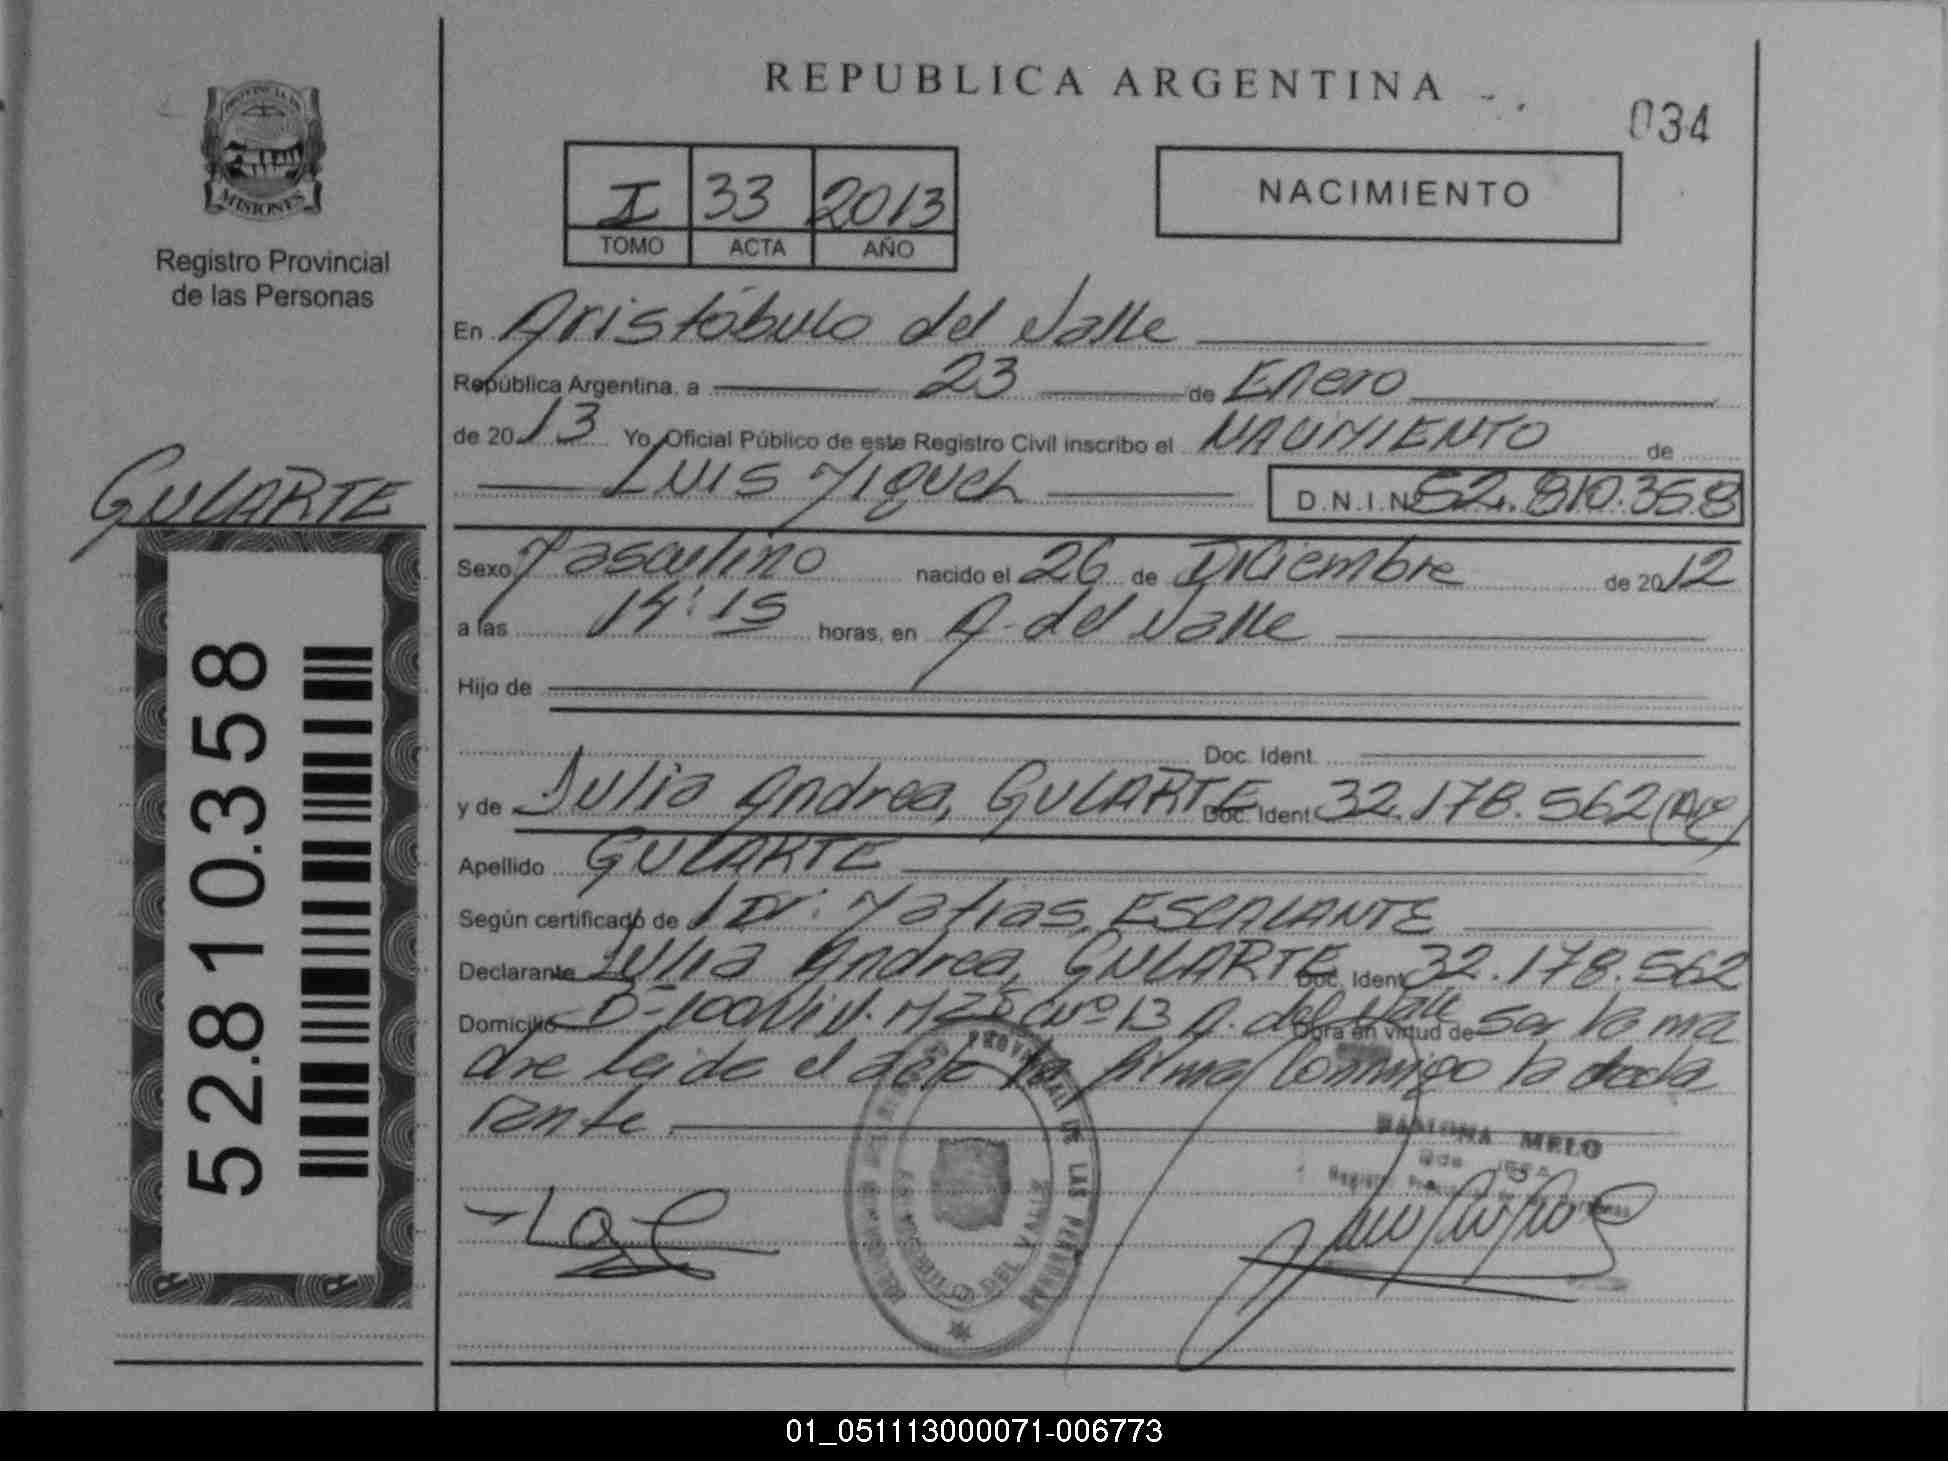 REPUBLICA ARGENTINA
034
PROVINCIA DE
MISIONES
Registro Provincial
de las Personas
I 33 2013
TOMO ACTA AÑO
NACIMIENTO
En Aristóbulo del Valle
República Argentina, a 23 de Enero
de 2013 Yo, Oficial Público de este Registro Civil inscribo el NACIMIENTO de
Luis Miguel D.N.I.Nº 52.810.358
GULARTE
52.810.358
Sexo Masculino nacido el 26 de Diciembre de 2012
a las 14:15 horas, en A. del Valle
Hijo de
Doc. Ident.
y de Julia Andrea, GULARTE Doc. Ident. 32.178.562 (Arg)
Apellido GULARTE
Según certificado de Dr. Matias, ESCALANTE
Declarante Julia Andrea, GULARTE Doc. Ident. 32.178.562
Domicilio Bº 100 Viv. Mz Nº 13 A. del Valle Obra en virtud de ser la ma
dre leida el acta la firma conmigo la decla
rante
RAMONA MELO
REGISTRO PROVINCIAL DE LAS PERSONAS
ARISTOBULO DEL VALLE
01_051113000071-006773